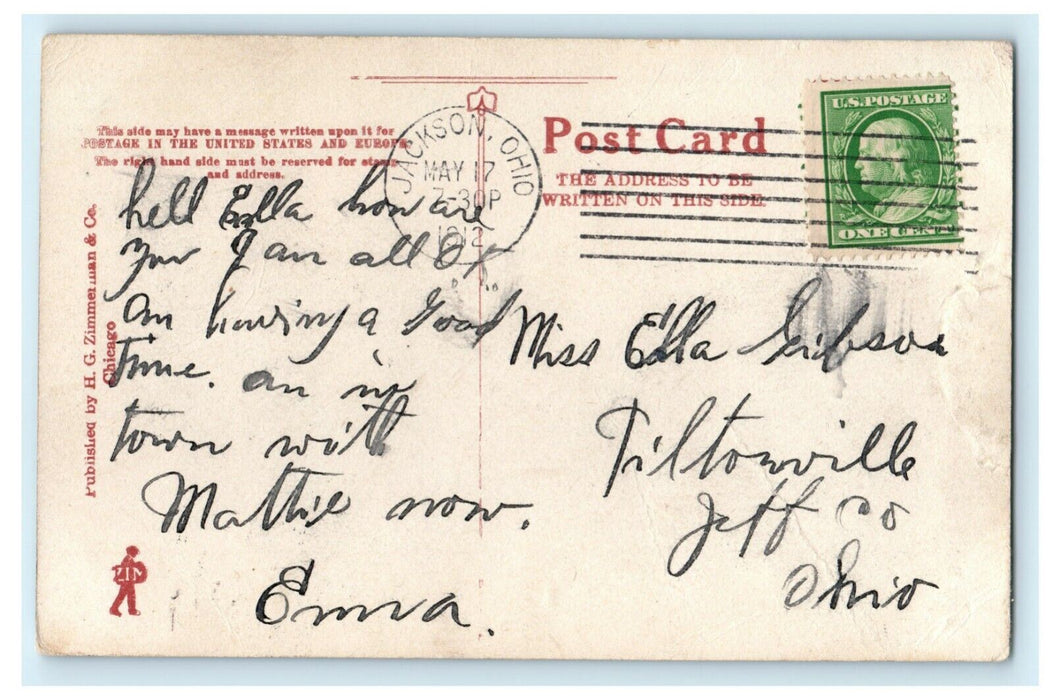 This side may have a message written upon it for
POSTAGE IN THE UNITED STATES AND EUROPE
The right hand side must be reserved for stamp
and address.
Published by H. G. Zimmerman & Co.
Chicago
ZIM
hell Ella how are
you I am all OK
am having a Good
time. am in
town with
Mattie now.
Emma.
JACKSON, OHIO
MAY 17
7-30P
1912
Post Card
THE ADDRESS TO BE
WRITTEN ON THIS SIDE.
U.S. POSTAGE
ONE CENT
Miss Ella Gibson
Tiltonville
Jeff Co
Ohio